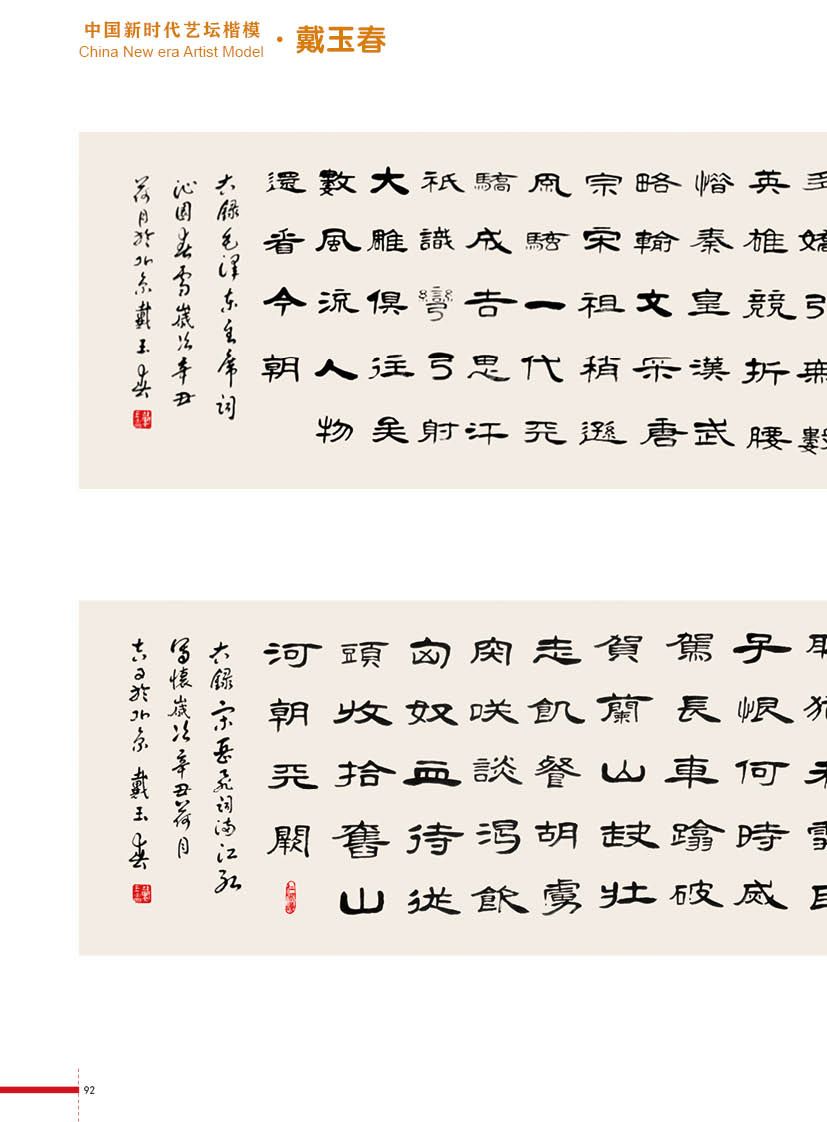 中国新时代艺坛楷模
China New era Artist Model
·戴玉春
多嬌引無數
英雄競折腰
惜秦皇漢武
略輸文采唐
宗宋祖稍遜
風騷一代天
驕成吉思汗
祇識彎弓射
大雕俱往矣
數風流人物
還看今朝
右録毛澤东主席詞
沁園春雪歲次辛丑
荷月於北京戴玉春
耻猶未雪臣
子恨何時滅
駕長車蹹破
賀蘭山缺壯
志飢餐胡虜
肉咲談渴飲
匈奴血待從
頭收拾舊山
河朝天闕
右録宋岳飛詞滿江紅
寫懷歲次辛丑荷月
吉日於北京戴玉春
92